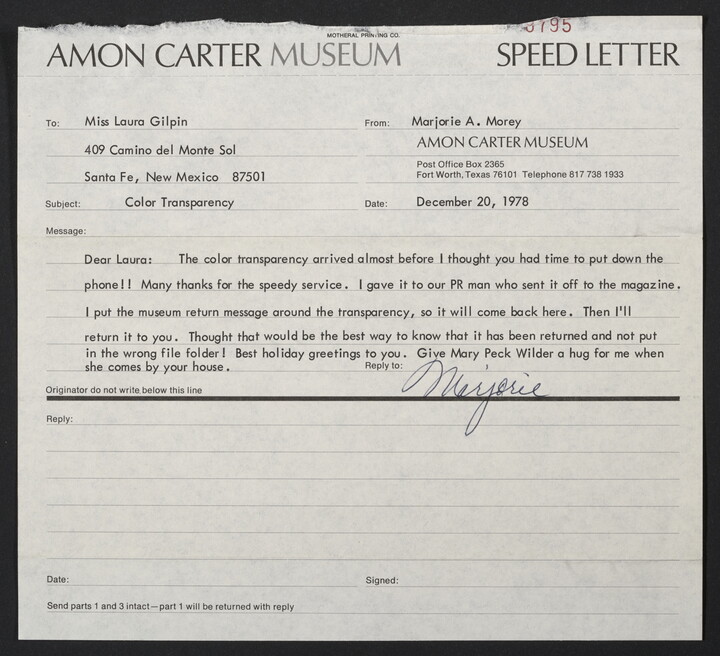 MOTHERAL PRINTING CO.
AMON CARTER MUSEUM SPEED LETTER
To: Miss Laura Gilpin From: Marjorie A. Morey
409 Camino del Monte Sol AMON CARTER MUSEUM
Post Office Box 2365
Santa Fe, New Mexico 87501 Fort Worth, Texas 76101 Telephone 817 738 1933
Subject: Color Transparency Date: December 20, 1978
Message:
Dear Laura: The color transparency arrived almost before I thought you had time to put down the
phone!! Many thanks for the speedy service. I gave it to our PR man who sent it off to the magazine.
I put the museum return message around the transparency, so it will come back here. Then I'll
return it to you. Thought that would be the best way to know that it has been returned and not put
in the wrong file folder! Best holiday greetings to you. Give Mary Peck Wilder a hug for me when
she comes by your house. Reply to: Marjorie
Originator do not write below this line
Reply:
Date: Signed:
Send parts 1 and 3 intact—part 1 will be returned with reply